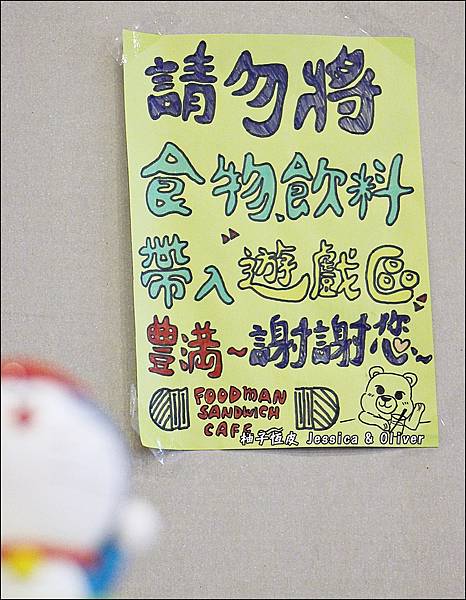 請勿將
食物、飲料
帶入遊戲區
豐滿~謝謝您~
FOODMAN
SANDWICH
CAFE
柚子伍皮 Jessica & Oliver